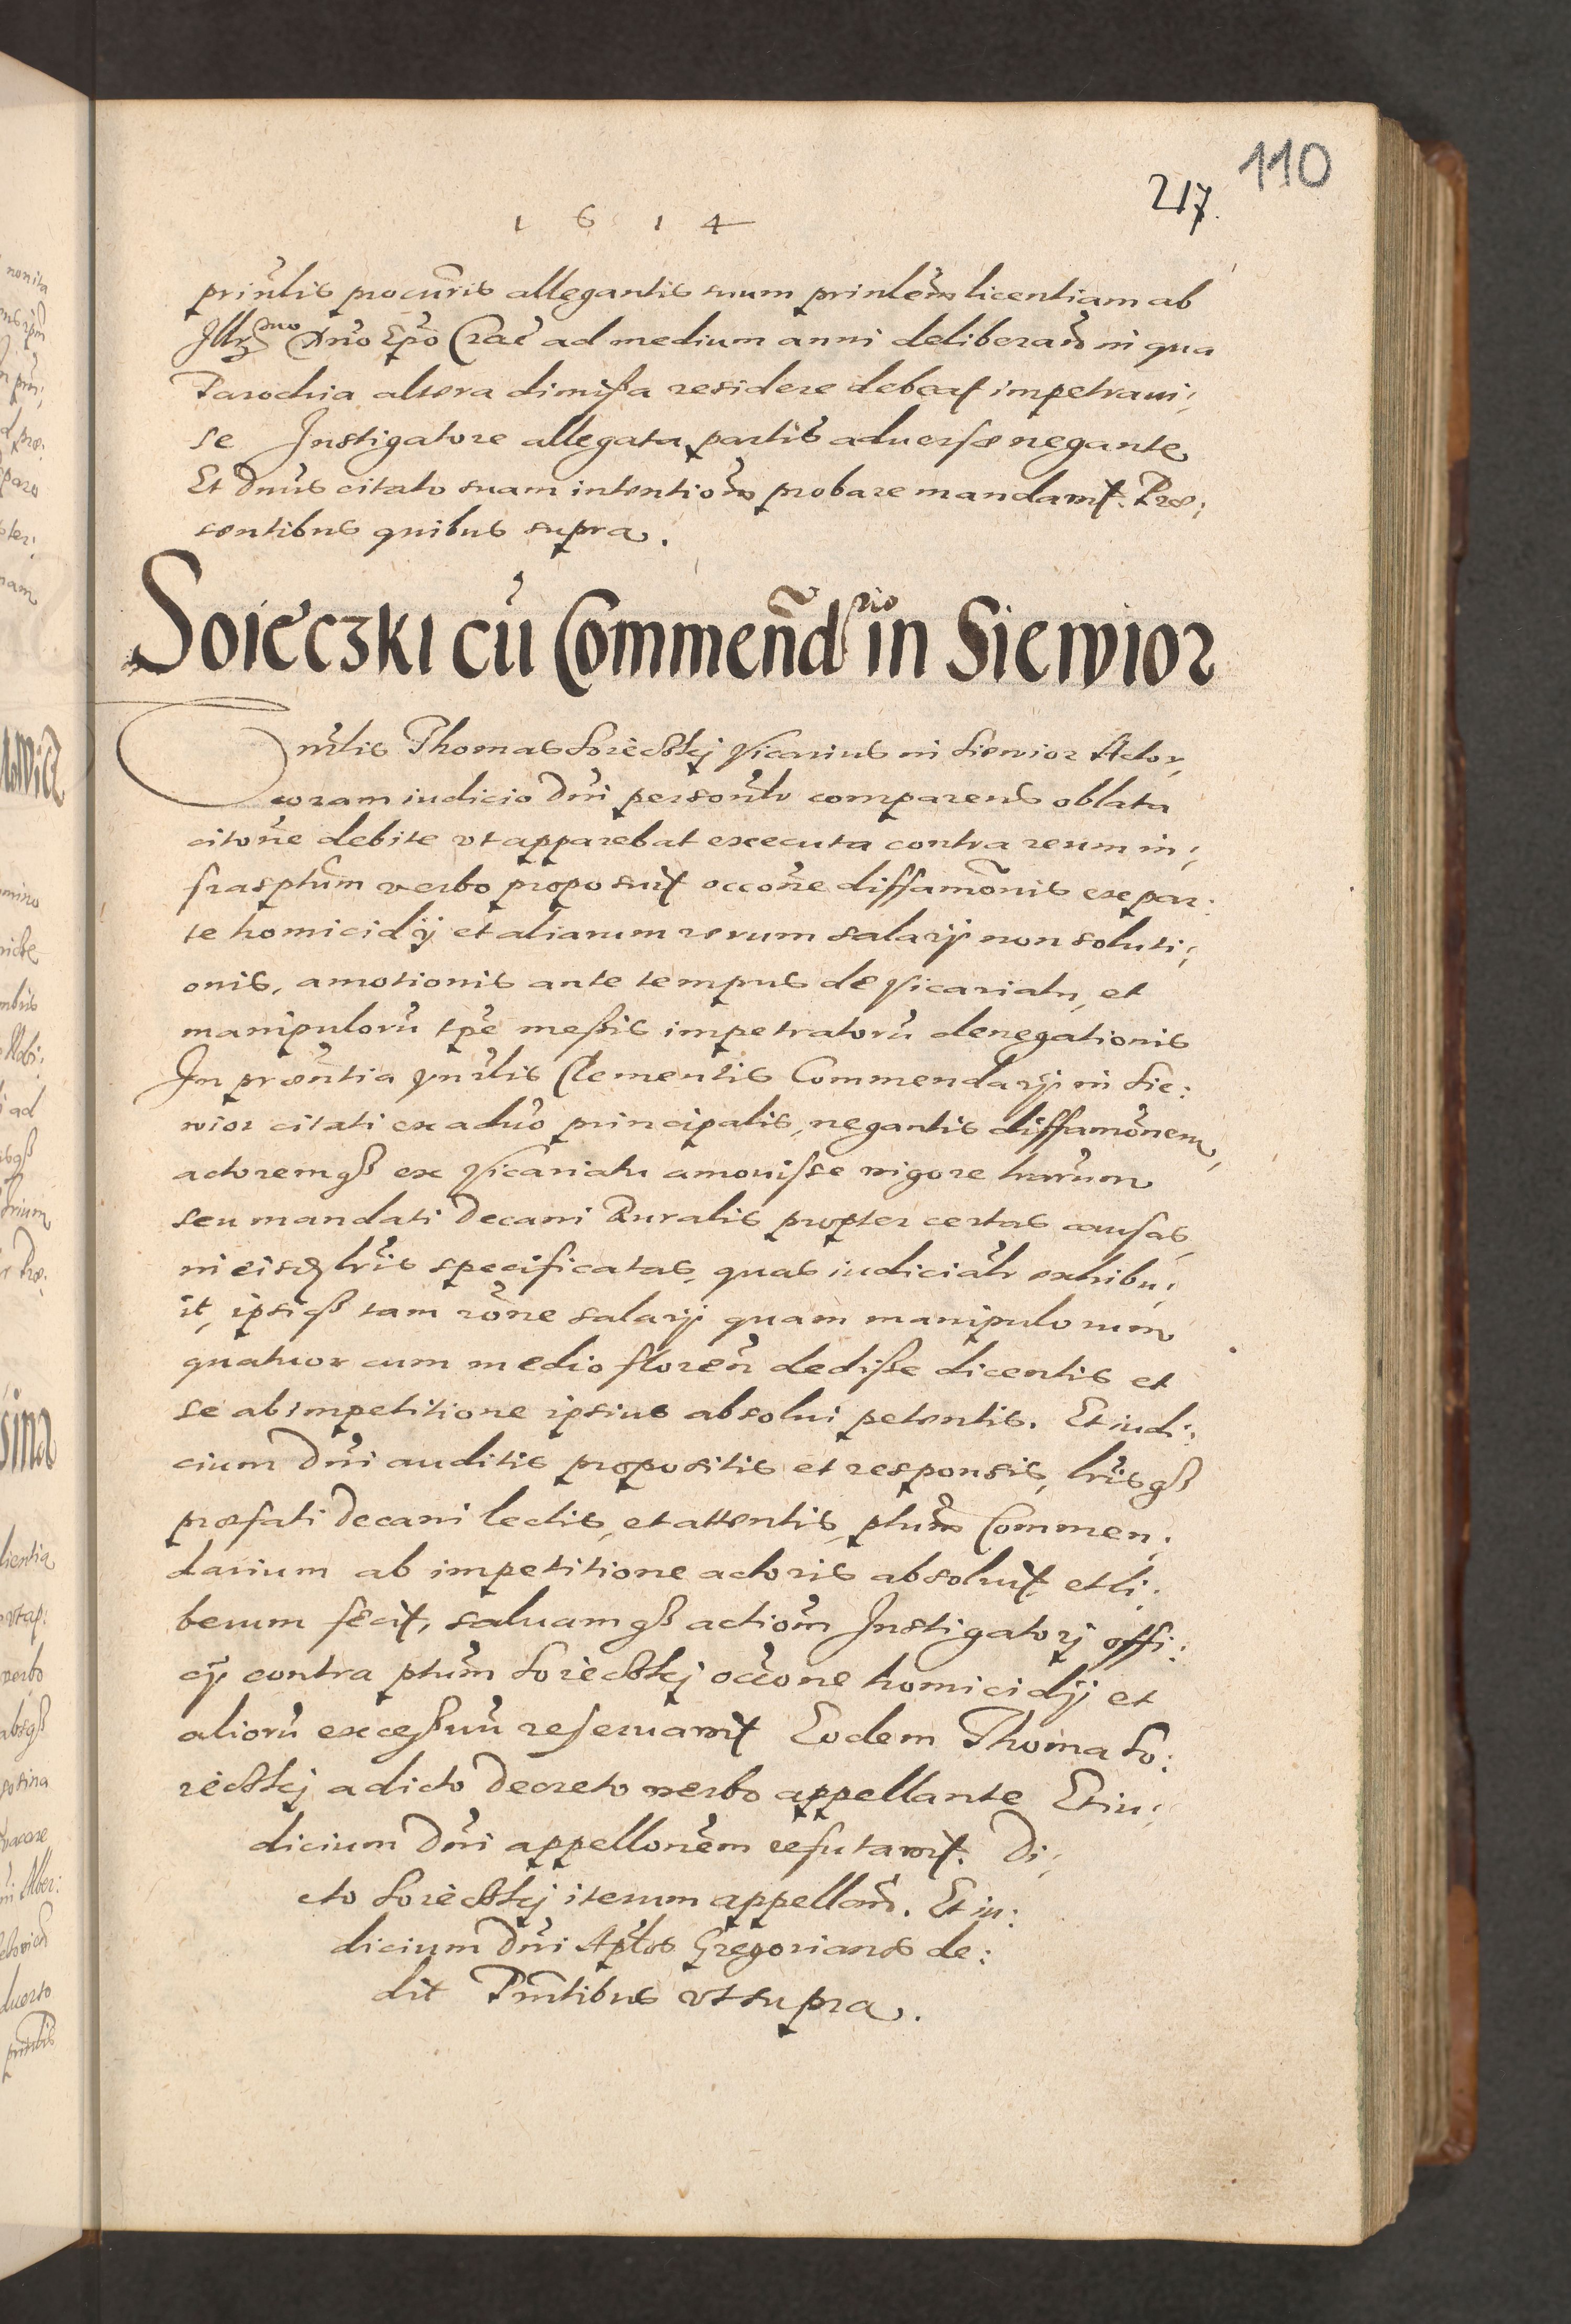 110
217.
1 6 1 4
prinṽlis procur̃is allegantis suum prinlem̃ licentiam ab
Illr̃mo Dño Ep̃o Crac̃ ad medium anni deliberañ in qua
Parochia altera dimißa residere debeat impetraui:
se Instigatore allegata partis aduersæ negante
Et Dñus citato suam intentiom̃ probare mandauit. Præ:
sentibus quibus supra.
Soieczki cũ Commeñdrio in Siewior
Vñrlis Thomas Soieczkj Vicarius in Siewior Actor,
coram iudicio Dñi personlr̃ comparens oblata
citoñe debite vt apparebat executa contra reum in:
frasptum̃ verbo proposuit occoñe diffamoñis ex par:
te homicidij et aliarum rerum salarij non soluti:
onis, amotionis ante tempus de Vicariatu, et
manipulorũ tp̃e meßis impetratorũ denegationis
In præñtia Vñrlis Clementis Commendarij in Sie:
wior citati ex aduõ principalis, negantis diffamoñem,
actoremqß ex Vicariatu amouisse vigore lrãrum
seu mandati Decani Ruralis propter certas causas,
in eisdẽ lrĩs specificatas, quas iudicialr̃ exhibu:
it, ipsiqß tam roñe salarij quam manipulorum
quatuor cum medio floreñ dediße dicentis et
se ab impetitione ipsius absolui petentis. Et iudi:
cium Dñi auditis propositis et responsis, lrĩsqß
præfati Decani lectis, et attentis, ptum̃ Commen:
darium ab impetitione actoris absoluit et li:
berum fecit, saluamqß actiom̃ Instigatorj offi:
cij contra ptum̃ Soieczkj occõne homicidij et
aliorũ exceßuũ reseruauit Eodem Thoma So:
ieczkj a dicto Decreto verbo appellante Et iu:
dicium Dñi appelloñem refutauit. Di:
cto Soieczkj iterum appellañ. Et iu:
dicium Dñi Apłos Gregorianos de:
dit Pñtibus vt supra.